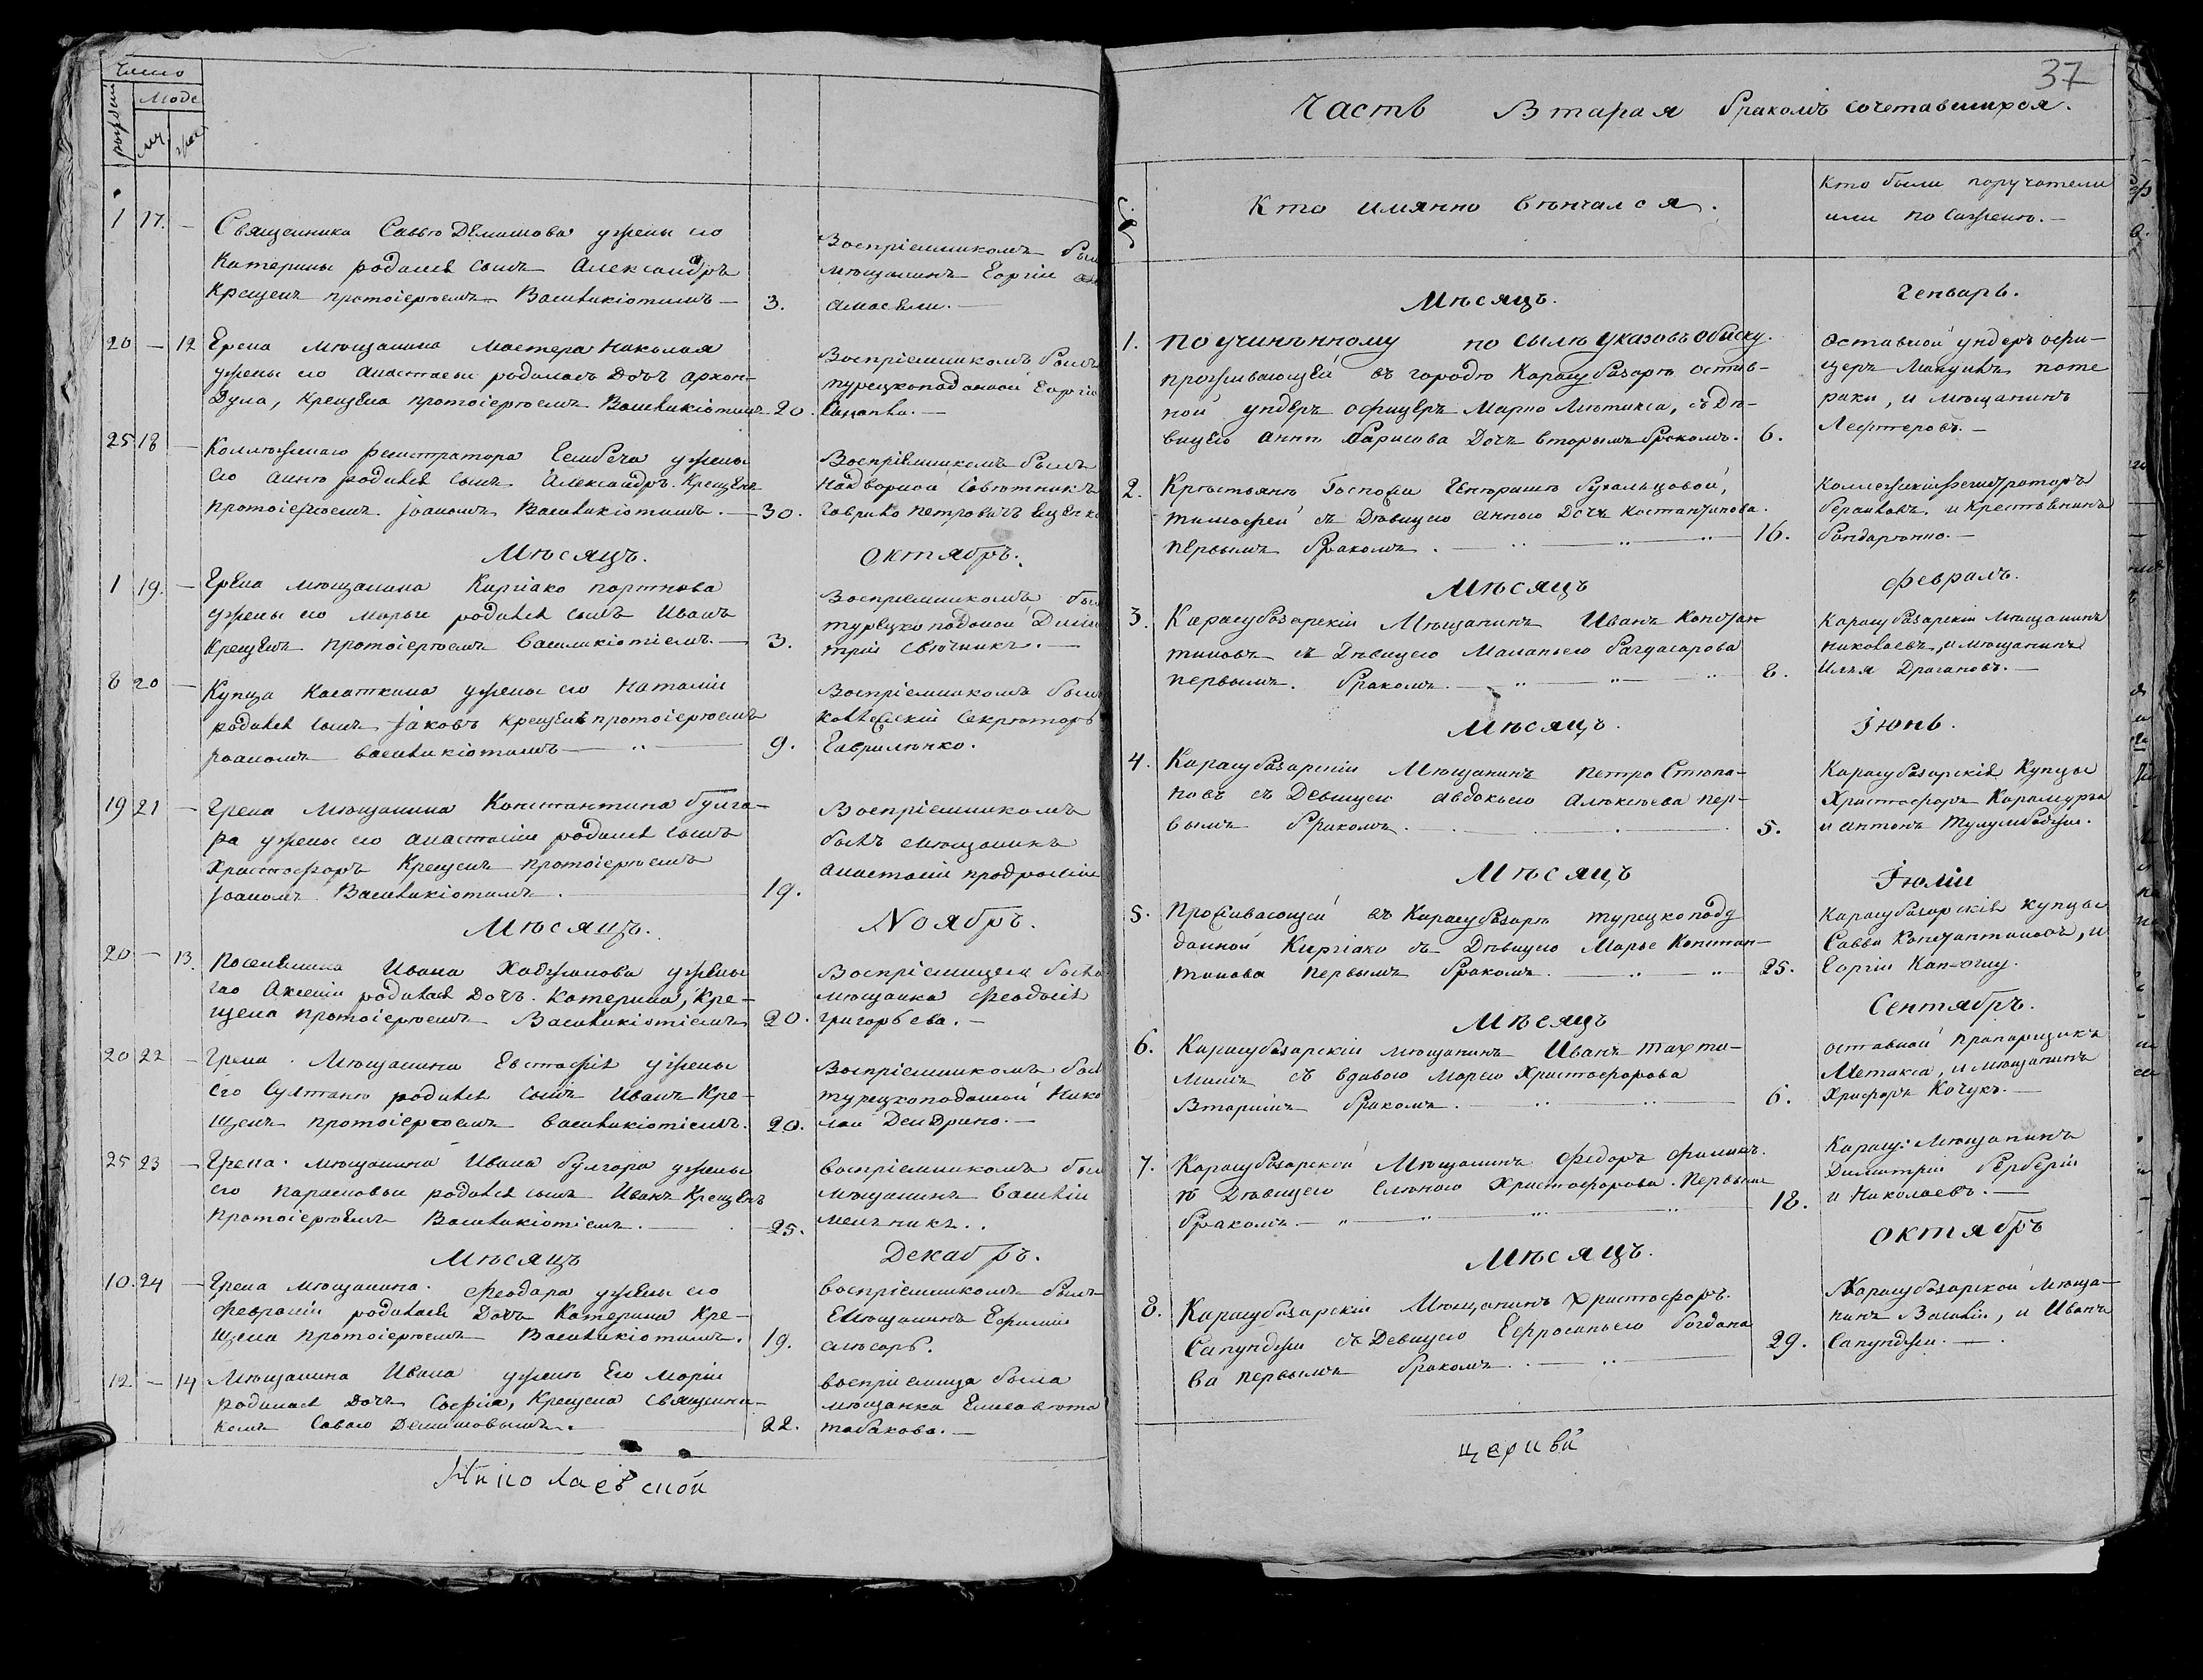 Число
рожденій
Моде
муж
жен
1 17. — Священника Саввы Демишова жены его
Катерины родился сынъ Александръ
Крещенъ протоіереемъ Василикіотимъ — 3.
Воспріемникомъ былъ
мещанинъ Еоргіи
20 — 12 Грека мещанина мастера Николая
жены его Анастасьи родилась дочь Архон-
дула, Крещена протоіереемъ Василикіотимъ 20.
Воспріемникомъ былъ
турецкоподаной Еоргіи
25 18 — Колежскаго регистратора жены
его Анны родился сынъ Александръ. Крещенъ
протоіереемъ Іоаномъ Василикіотимъ. — 30.
Воспріемникомъ былъ
Надворной Советникъ
Гаврило Петровичъ
Месяцъ. Октябръ.
1 19. — Грека мещанина Киріако портнова
жены его Марьи родился сынъ Иванъ
Крещенъ протоіереемъ Василикіотіемъ. — 3.
Воспреемникомъ былъ
турецко подоной Дими
трій
8 20 — Купца Касаткина жены его Наталіи
родился сынъ Іаковъ Крещенъ протоіереемъ
Іоаномъ Василикіотимъ — 9.
Воспріемникомъ былъ
Колежскій Секретарь
Гавриленко.
19 21 — Грека мещанина Константина Булга-
ра жены его Анастасіи родился сынъ
Христофоръ Крещенъ протоіереемъ
Іоаномъ Василикіотимъ. 19.
Воспріемникомъ
былъ мещанинъ
Анастасій
Месяцъ. Ноябръ.
20 — 13. Поселянина Ивана Хаджинова жены
его Аксеніи родилась дочь Катерина, Кре-
щена протоіереемъ Василикіотіемъ 20.
Воспріемницею была
мещанка Феодосія
Григорьева. —
20 22 — Грека мещанина Евстафія жены
его Султаны родился сынъ Иванъ Кре-
щенъ протоіереемъ Василикіотіемъ. 20.
Воспріемникомъ былъ
турецкоподаной Нико
лай Дендрино. —
25 23 — Грека мещанина Ивана Булгара жены
его Парасковьи родился сынъ Иванъ Крещенъ
протоіереемъ Василикіотіемъ. — 25.
Воспріемникомъ былъ
мещанинъ Василій
мельникъ.
Месяцъ Декабръ.
10. 24 — Грека мещанина Феодара жены его
Февраніи родилась дочь Катерина Кре-
щена протоіереемъ Василикіотимъ. 19.
Воспріемникомъ былъ
мещанинъ Ефимій
слюсарь.
12 — 14 Мещанина Ивана жены Его Маріи
родилась дочь Софія, Крещена священни-
комъ Саввою Демишовымъ. 22.
воспріемница была
мещанка Елисавета
Табакова. —
Николаевской
37
Часть Втарая бракомъ сочетавшихся.
Кто имянно венчался.
Кто были поручатели
или по сажены. —
Месяцъ. Генварь.
1. По учиненному по силе указовъ обыску.
проживающей въ городе Карасубазаре остав-
ной ундеръ офицеръ Марко Лютикса, съ де-
вицею Анны Барисова дочь вторымъ бракомъ. 6.
Оставной ундеръ офи-
церъ
и мещанинъ
Лефтеровъ. —
2. Крестьянъ Госпожи
Тимофей съ девицею Анною дочь Костантинова
первымъ бракомъ. — 16.
Колежскій регистраторъ
и крестьянинъ
Бондаренко. —
Месяцъ Февралъ.
3. Карасубазарскій мещанинъ Иванъ Констан
тиновъ съ девицею Маланьею Багдасарова
первымъ бракомъ. — 8.
Карасубазарскіи мещанинъ
Николаевъ, и мещанинъ
Илья Драгановъ. —
Месяцъ. Іюнь.
4. Карасубазарскіи мещанинъ Петро Степа-
новъ съ девицею Авдокьею Алексеева пер-
вымъ бракомъ. 5.
Карасубазарскія купцы
Христофоръ Карамурза
и Антонъ
Месяцъ Іюліи
5. Проживающей въ Карасубазаре турецкопод
даной Киріако съ девицею Марье Констан-
тинова первымъ бракомъ. — 25.
Карасубазарскія купцы
Савва Константиновъ, и
Еоргіи
Месяцъ Сентябръ.
6. Карасубазарскіи мещанинъ Иванъ Тахта-
мишъ съ вдавою Марею Христофорова
Вторимъ бракомъ. — 6.
оставной прапорщикъ
Метакса, и мещанинъ
Кочукъ. —
7. Карасубазарской мещанинъ Федоръ Фоминъ.
съ девицею Еленою Христофорова. Первымъ
бракомъ. — 18.
Карасу: мещанинъ
Димитріи Берберіи
и Николаевъ. —
Месяцъ. Октябръ
8. Карасубазарскіи мещанинъ Христофоръ
Сапунджи съ девицею Ефросиньею Богдано
ва первымъ бракомъ. — 29.
Карасубазарской меща-
нинъ Василіи, и Иванъ
Сапунджи. —
церкви